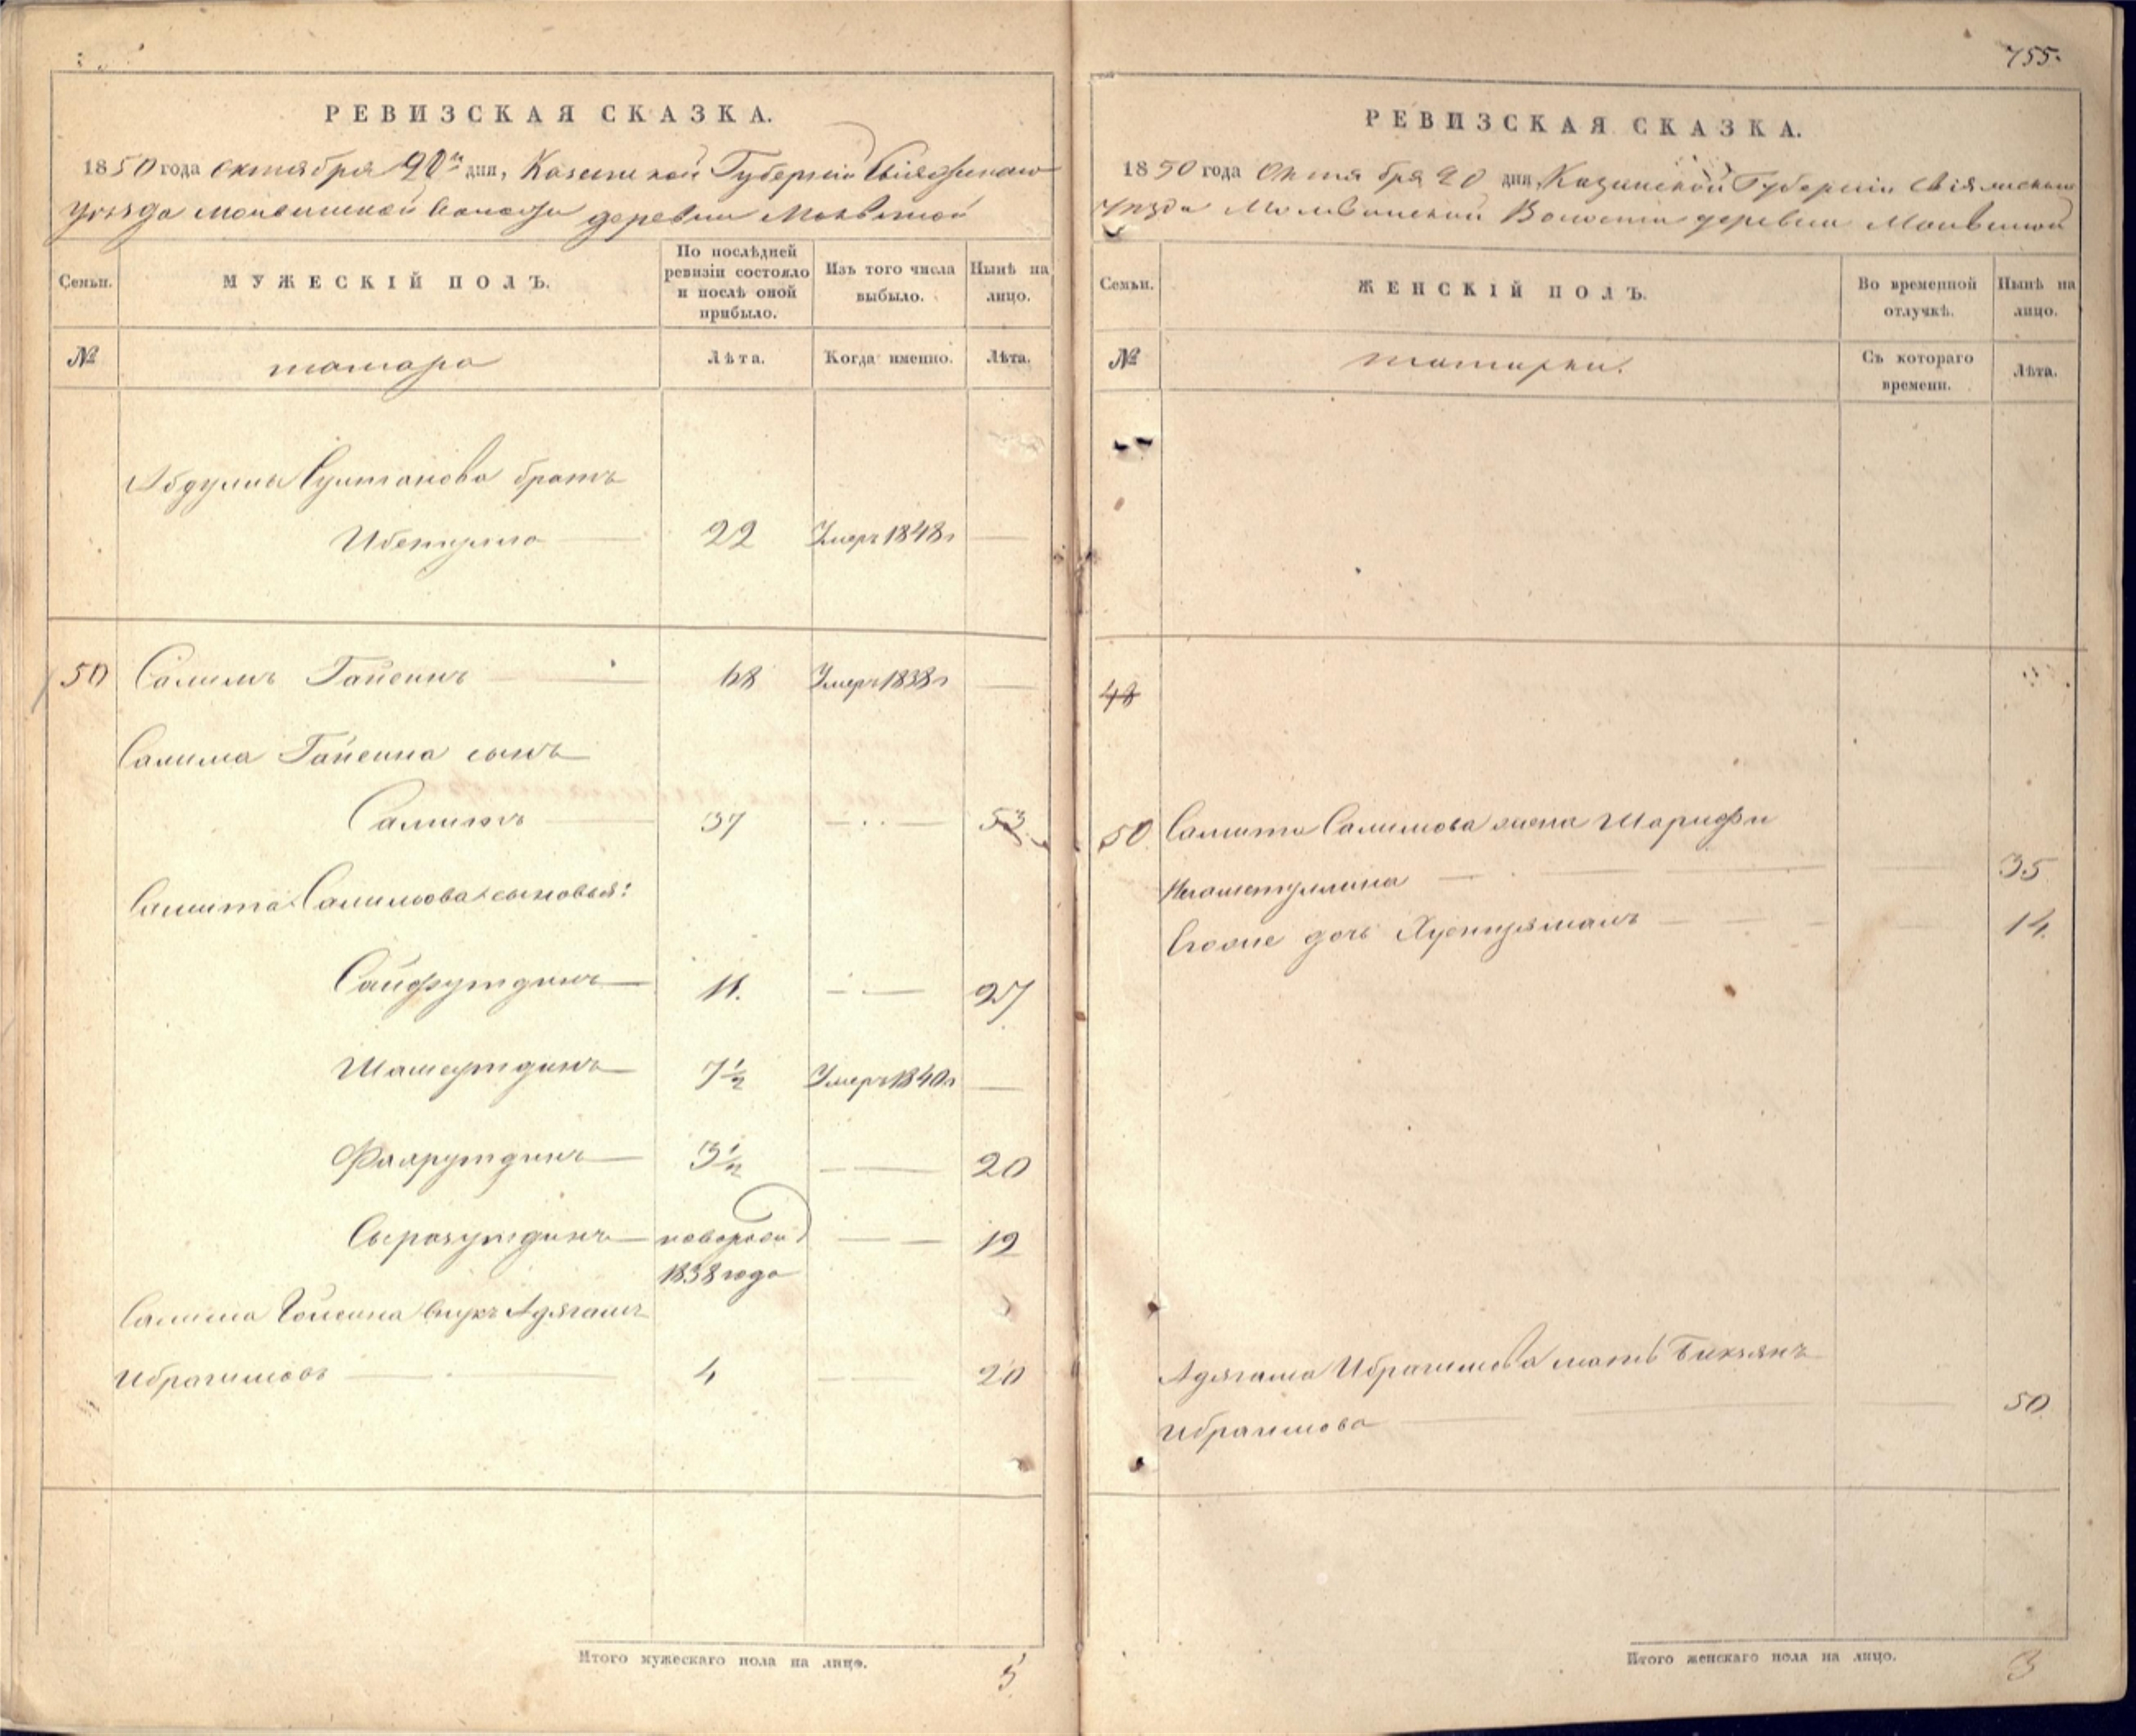 755.
РЕВИЗСКАЯ СКАЗКА.
1850 года октября 20 дня, Казанской Губернии Свіяжскаго
уезда молвинской волости деревни Молвиной
Семьи.
МУЖЕСКІЙ ПОЛЪ.
По послѣдней ревизіи состояло и послѣ оной прибыло.
Изъ того числа выбыло.
Нынѣ на лицо.
№
татара
Лѣта.
Когда именно.
Лѣта.
Абдуллы Султанова братъ
22 Умеръ 1848 г —
50 Салимъ Гайсинъ — 68 Умеръ 1838 г —
Салима Гайсина сынъ
Самитъ — 37 — 53
Самита Салимова сыновья:
Сайфутдинъ — 11. — 27
Шамсутдинъ — 7½ Умеръ 1840 г —
Фахрутдинъ — 3½ — 20
Сыразутдинъ — — 19
1838 года
Салима Гайсина внукъ Адягамъ
Ибрагимовъ — 4 — 20
Итого мужескаго пола на лицо. 5
РЕВИЗСКАЯ СКАЗКА.
1850 года Октября 20 дня, Казанской Губерніи Свіяжскаго
Уезда Молвинской Волости деревни Молвиной
Семьи.
ЖЕНСКІЙ ПОЛЪ.
Во временной отлучкѣ.
Нынѣ на лицо.
№
татарки.
Съ котораго времени.
Лѣта.
48
50 Самита Салимова жена Шарифа
Негаметуллина — 35
дочь — 14.
Адягама Ибрагимова мать
Ибрагимова — 50
Итого женскаго пола на лицо. 3